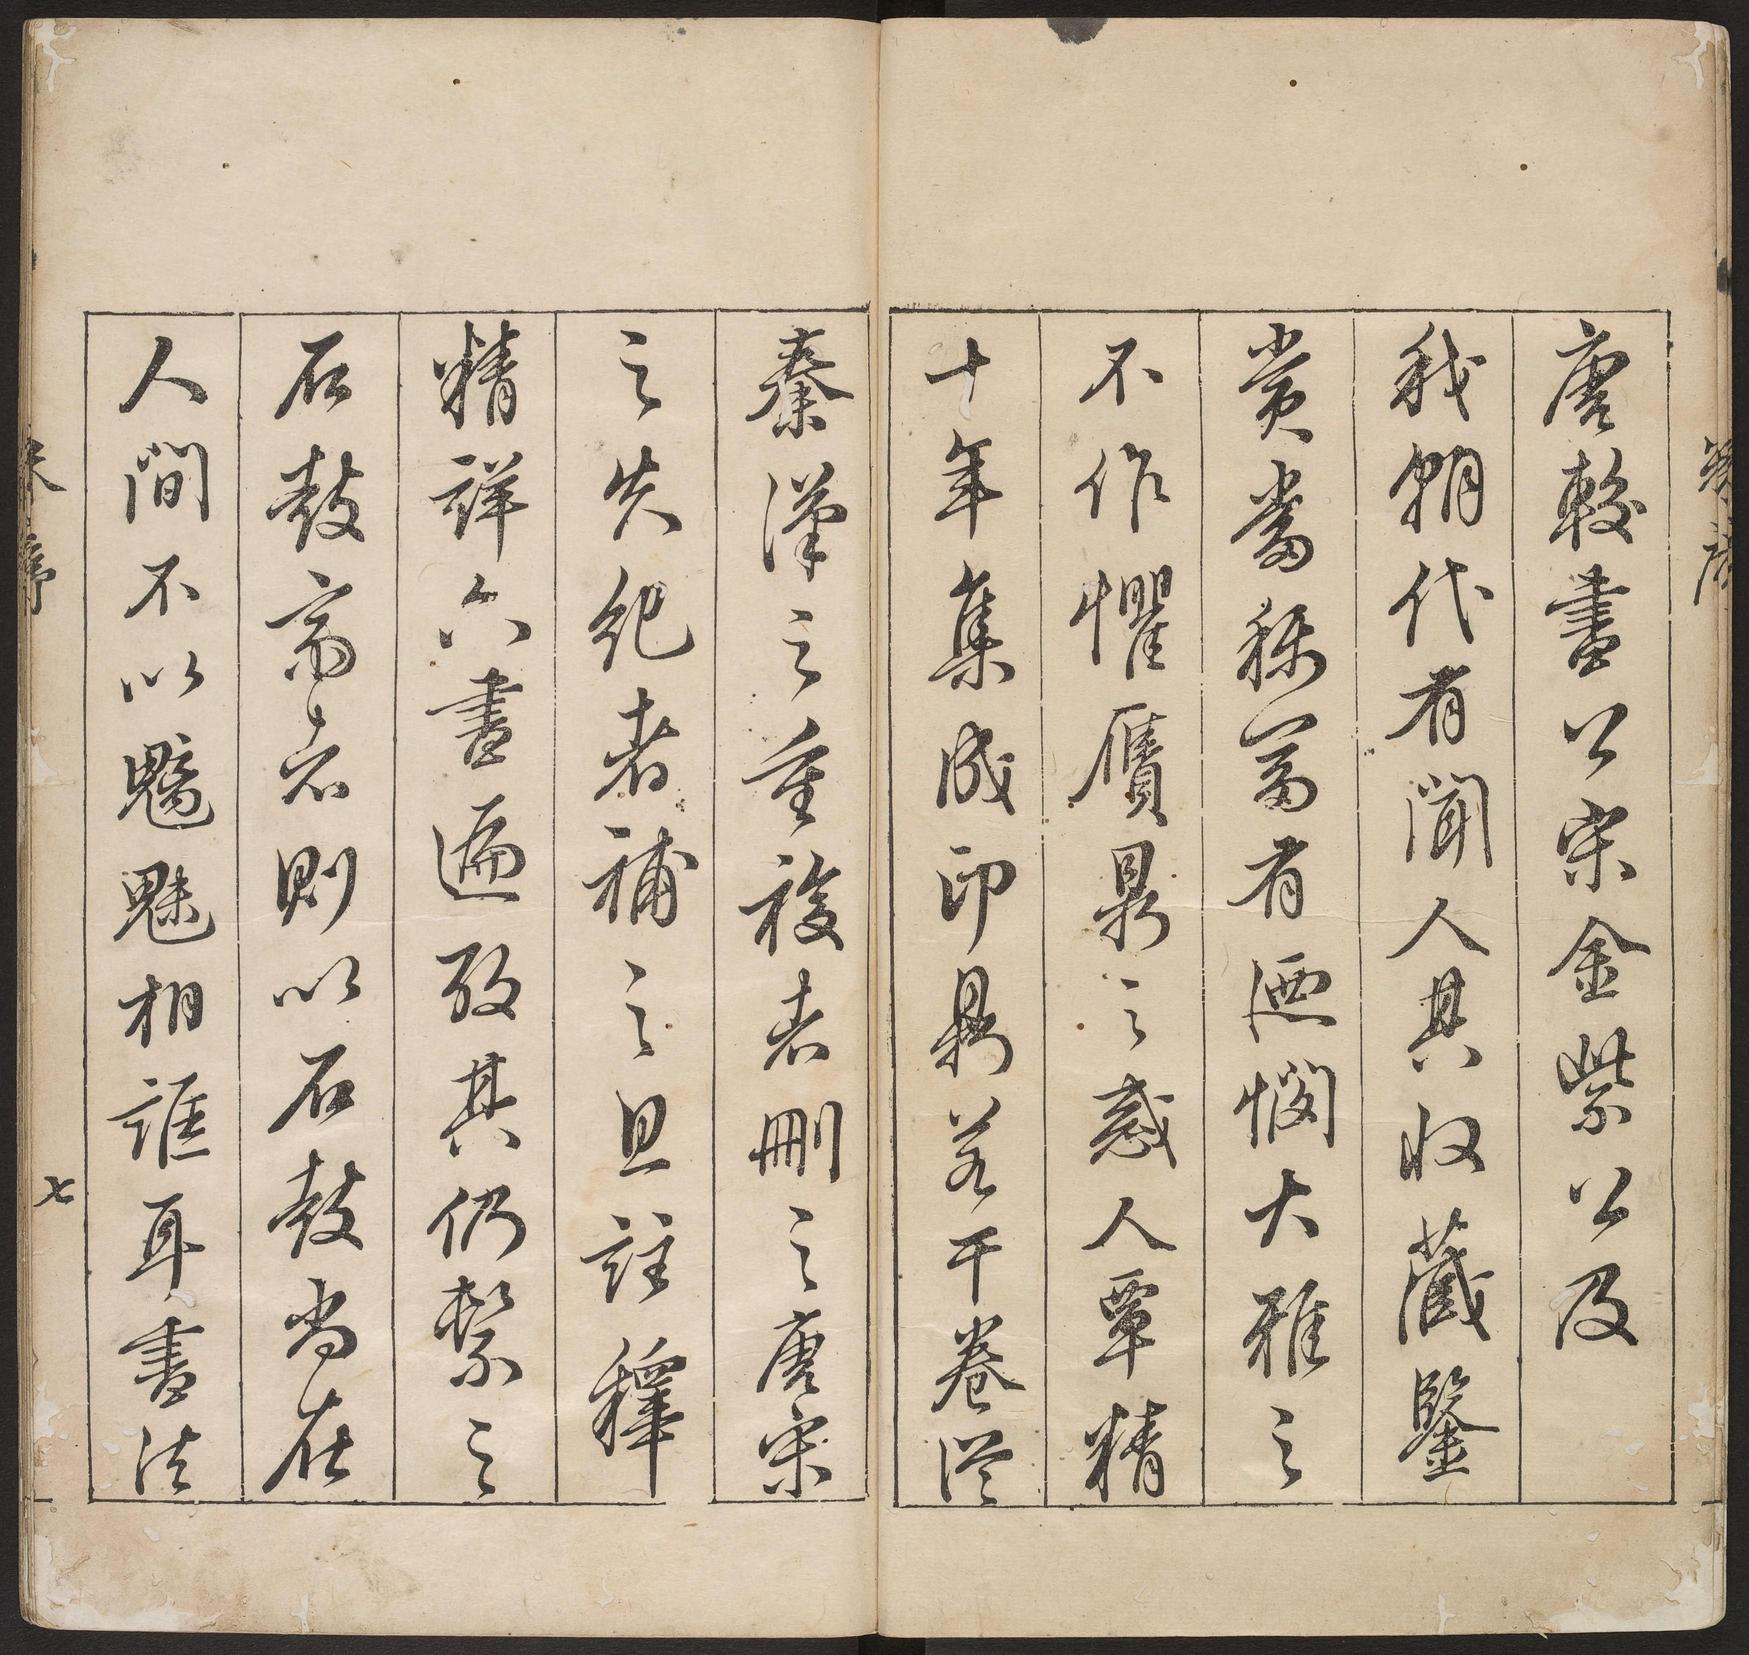 唐較書公宋金紫公及
我朝代有聞人其收藏鑒
賞奮稱富有迺憫大雅之
不作懼贋鼎之惑人覃精
十年集成印鼎若干卷從
秦漢之重複者刪之唐宋
之失紀者補之且註釋
精詳六書遍攷其仍繫之
石鼓齋者則以石鼓尚在
人間不以魑魅相誰耳書法
七